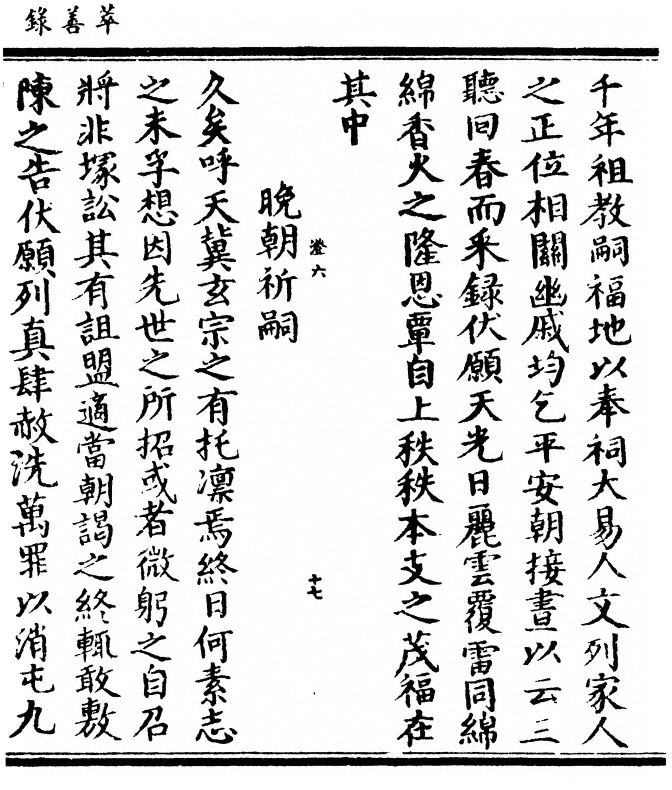 萃善錄
千年祖教嗣福地以奉祠大易人文列家人
之正位相關幽戚均乞平安朝接晝以云三
聽回春而采録伏願天光日麗雲覆雷同綿
綿香火之隆恩覃自上秩秩本支之茂福在
其中
澄六
十七
晚朝祈嗣
久矣呼天冀玄宗之有托凛焉終日何素志
之未孚想因先世之所招或者微躬之自召
將非塚訟其有詛盟適當朝謁之終輒敢敷
陳之告伏願列真肆赦洗萬罪以消屯九